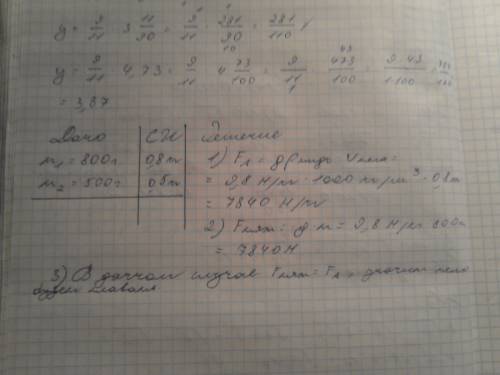 y = 9/11 · 3 11/90 = 9/11 · 281/90 = 281/110
y = 9/11 · 4,73 = 9/11 · 4 73/100 = 9/11 · 473/100 = 9·43/1·100 =
= 3,87
Дано СИ Решение
m₁ = 800г 0,8т 1) Fл = gρжидк Vтела =
m₂ = 500г 0,5т = 9,8 Н/кг · 1000 кг/м³ · 0,8т
= 7840 Н/кг
2) Fтяж = g m = 9,8 Н/кг 800г
= 7840Н
3) В данном случае Fтяж = Fл, значит тело
будет плавать